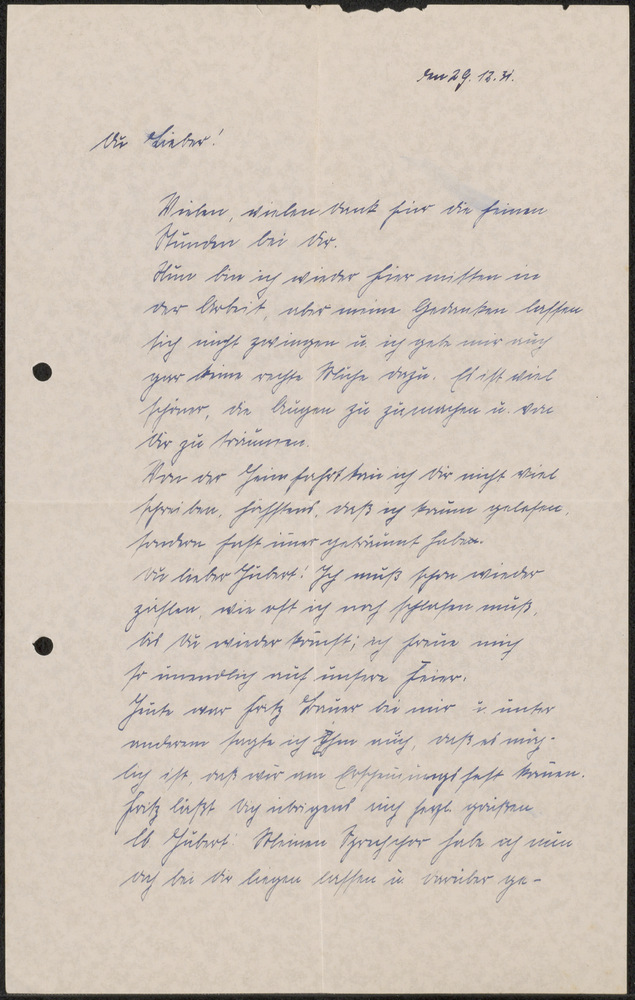 den 29.12.31.
Du Lieber!
Vielen, vielen Dank für die feinen
Stunden bei Dir.
Nun bin ich wieder hier mitten in
der Arbeit, aber meine Gedanken lassen
sich nicht zwingen u. ich gebe mir auch
gar keine rechte Mühe dazu. Es ist viel
schöner, die Augen zu zumachen u. von
Dir zu träumen.
Von der Heimfahrt kann ich Dir nicht viel
schreiben, höchstens, daß ich kaum gelesen,
sondern fast immer geträumt habe.
Du lieber Hubert! Ich muß schon wieder
zählen, wie oft ich noch schlafen muß,
bis Du wieder kommst; ich freue mich
so unendlich auf unsere Feier.
Heute war Fritz Bauer bei mir u. unter
anderem sagte ich Ihm auch, daß es mög-
lich ist, daß wir am Erscheinungsfest kommen.
Fritz läßt Dich übrigens auch herzl. grüßen
Lb Hubert! Meinen Sprechchor habe ich nun
doch bei Dir liegen lassen u. darüber ge-